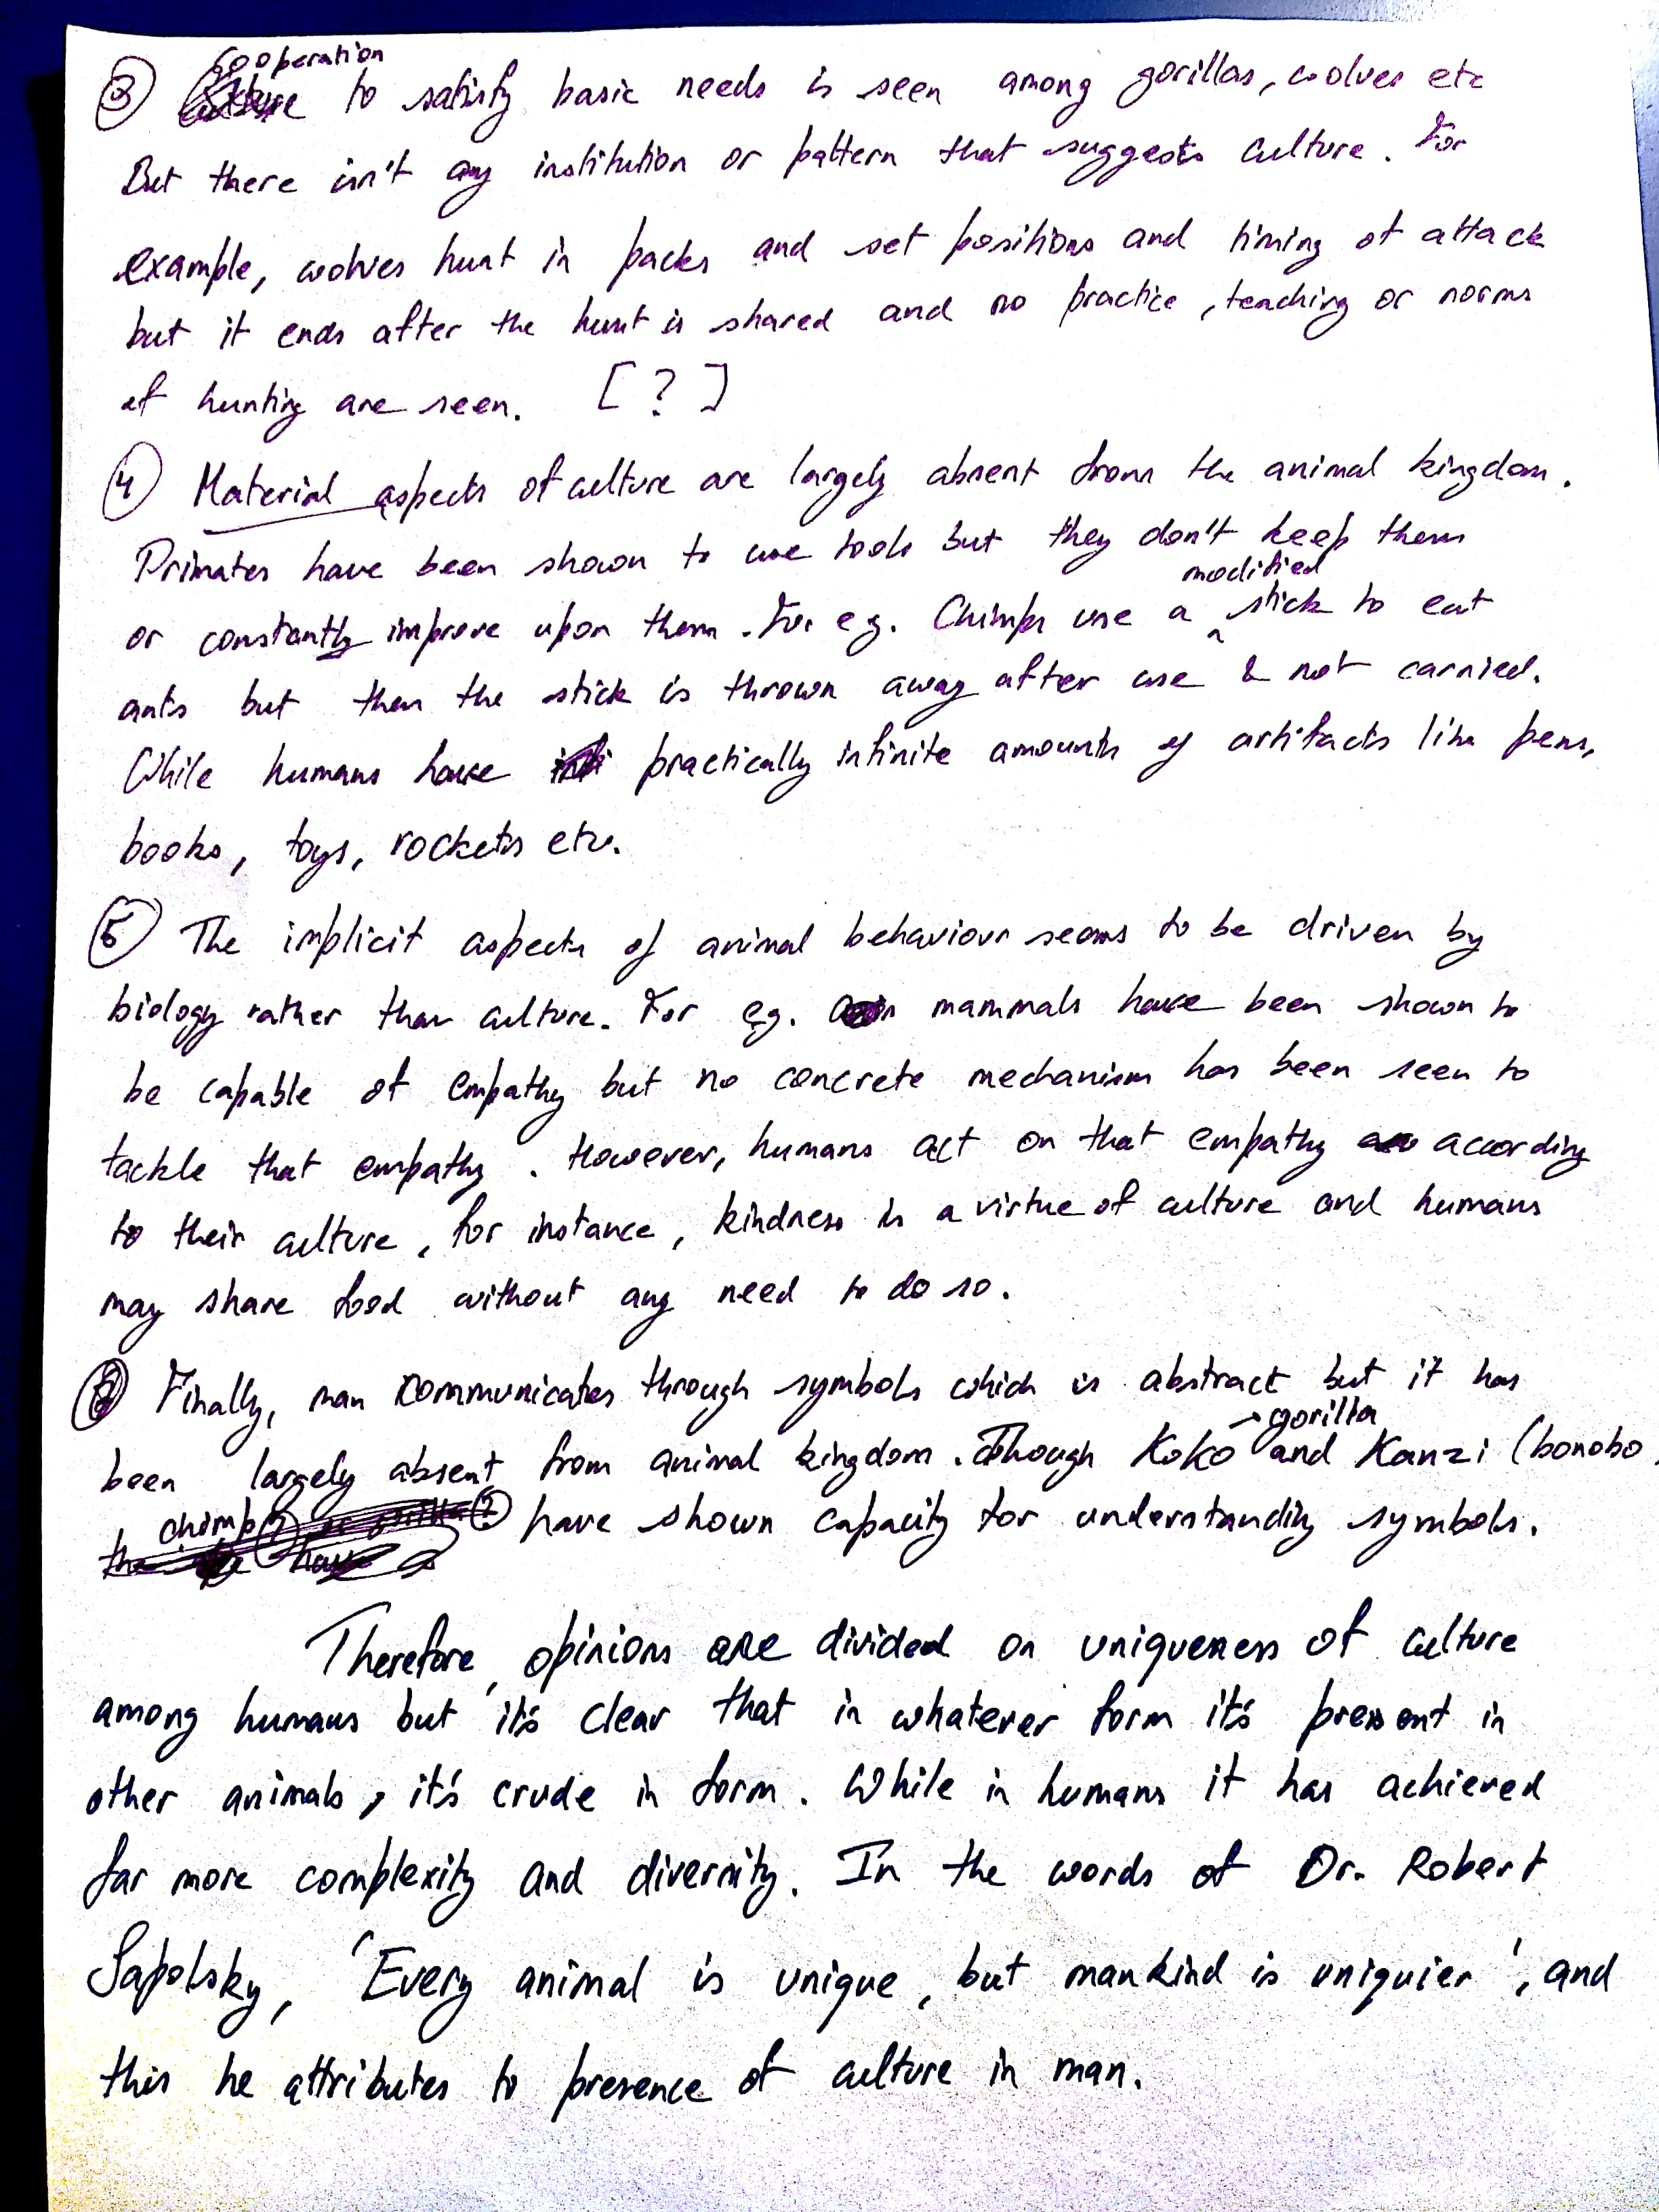 ③ Cooperation
to satisfy basic needs is seen among gorillas, wolves etc
But there isn't any institution or pattern that suggests culture. For
example, wolves hunt in packs and set positions and timing of attack
but it ends after the hunt is shared and no practice, teaching or norms
of hunting are seen. [?]
④ Material aspects of culture are largely absent from the animal kingdom.
Primates have been shown to use tools but they don't keep them
modified
or constantly improve upon them. For eg. Chimps use a ^ stick to eat
ants but then the stick is thrown away after use & not carried.
While humans have practically infinite amounts of artifacts like pens,
books, toys, rockets etc.
⑤ The implicit aspects of animal behaviour seems to be driven by
biology rather than culture. For eg. mammals have been shown to
be capable of empathy but no concrete mechanism has been seen to
tackle that empathy. However, humans act on that empathy according
to their culture, for instance, kindness is a virtue of culture and humans
may share food without any need to do so.
⑥ Finally, man communicates through symbols which is abstract but it has
→ gorilla
been largely absent from animal kingdom. Though Koko and Kanzi (bonobo
chimp) have shown capacity for understanding symbols.
Therefore, opinions are divided on uniqueness of culture
among humans but it's clear that in whatever form it's present in
other animals, it's crude in form. While in humans it has achieved
far more complexity and diversity. In the words of Dr. Robert
Sapolsky, 'Every animal is unique, but mankind is uniquier', and
this he attributes to presence of culture in man.